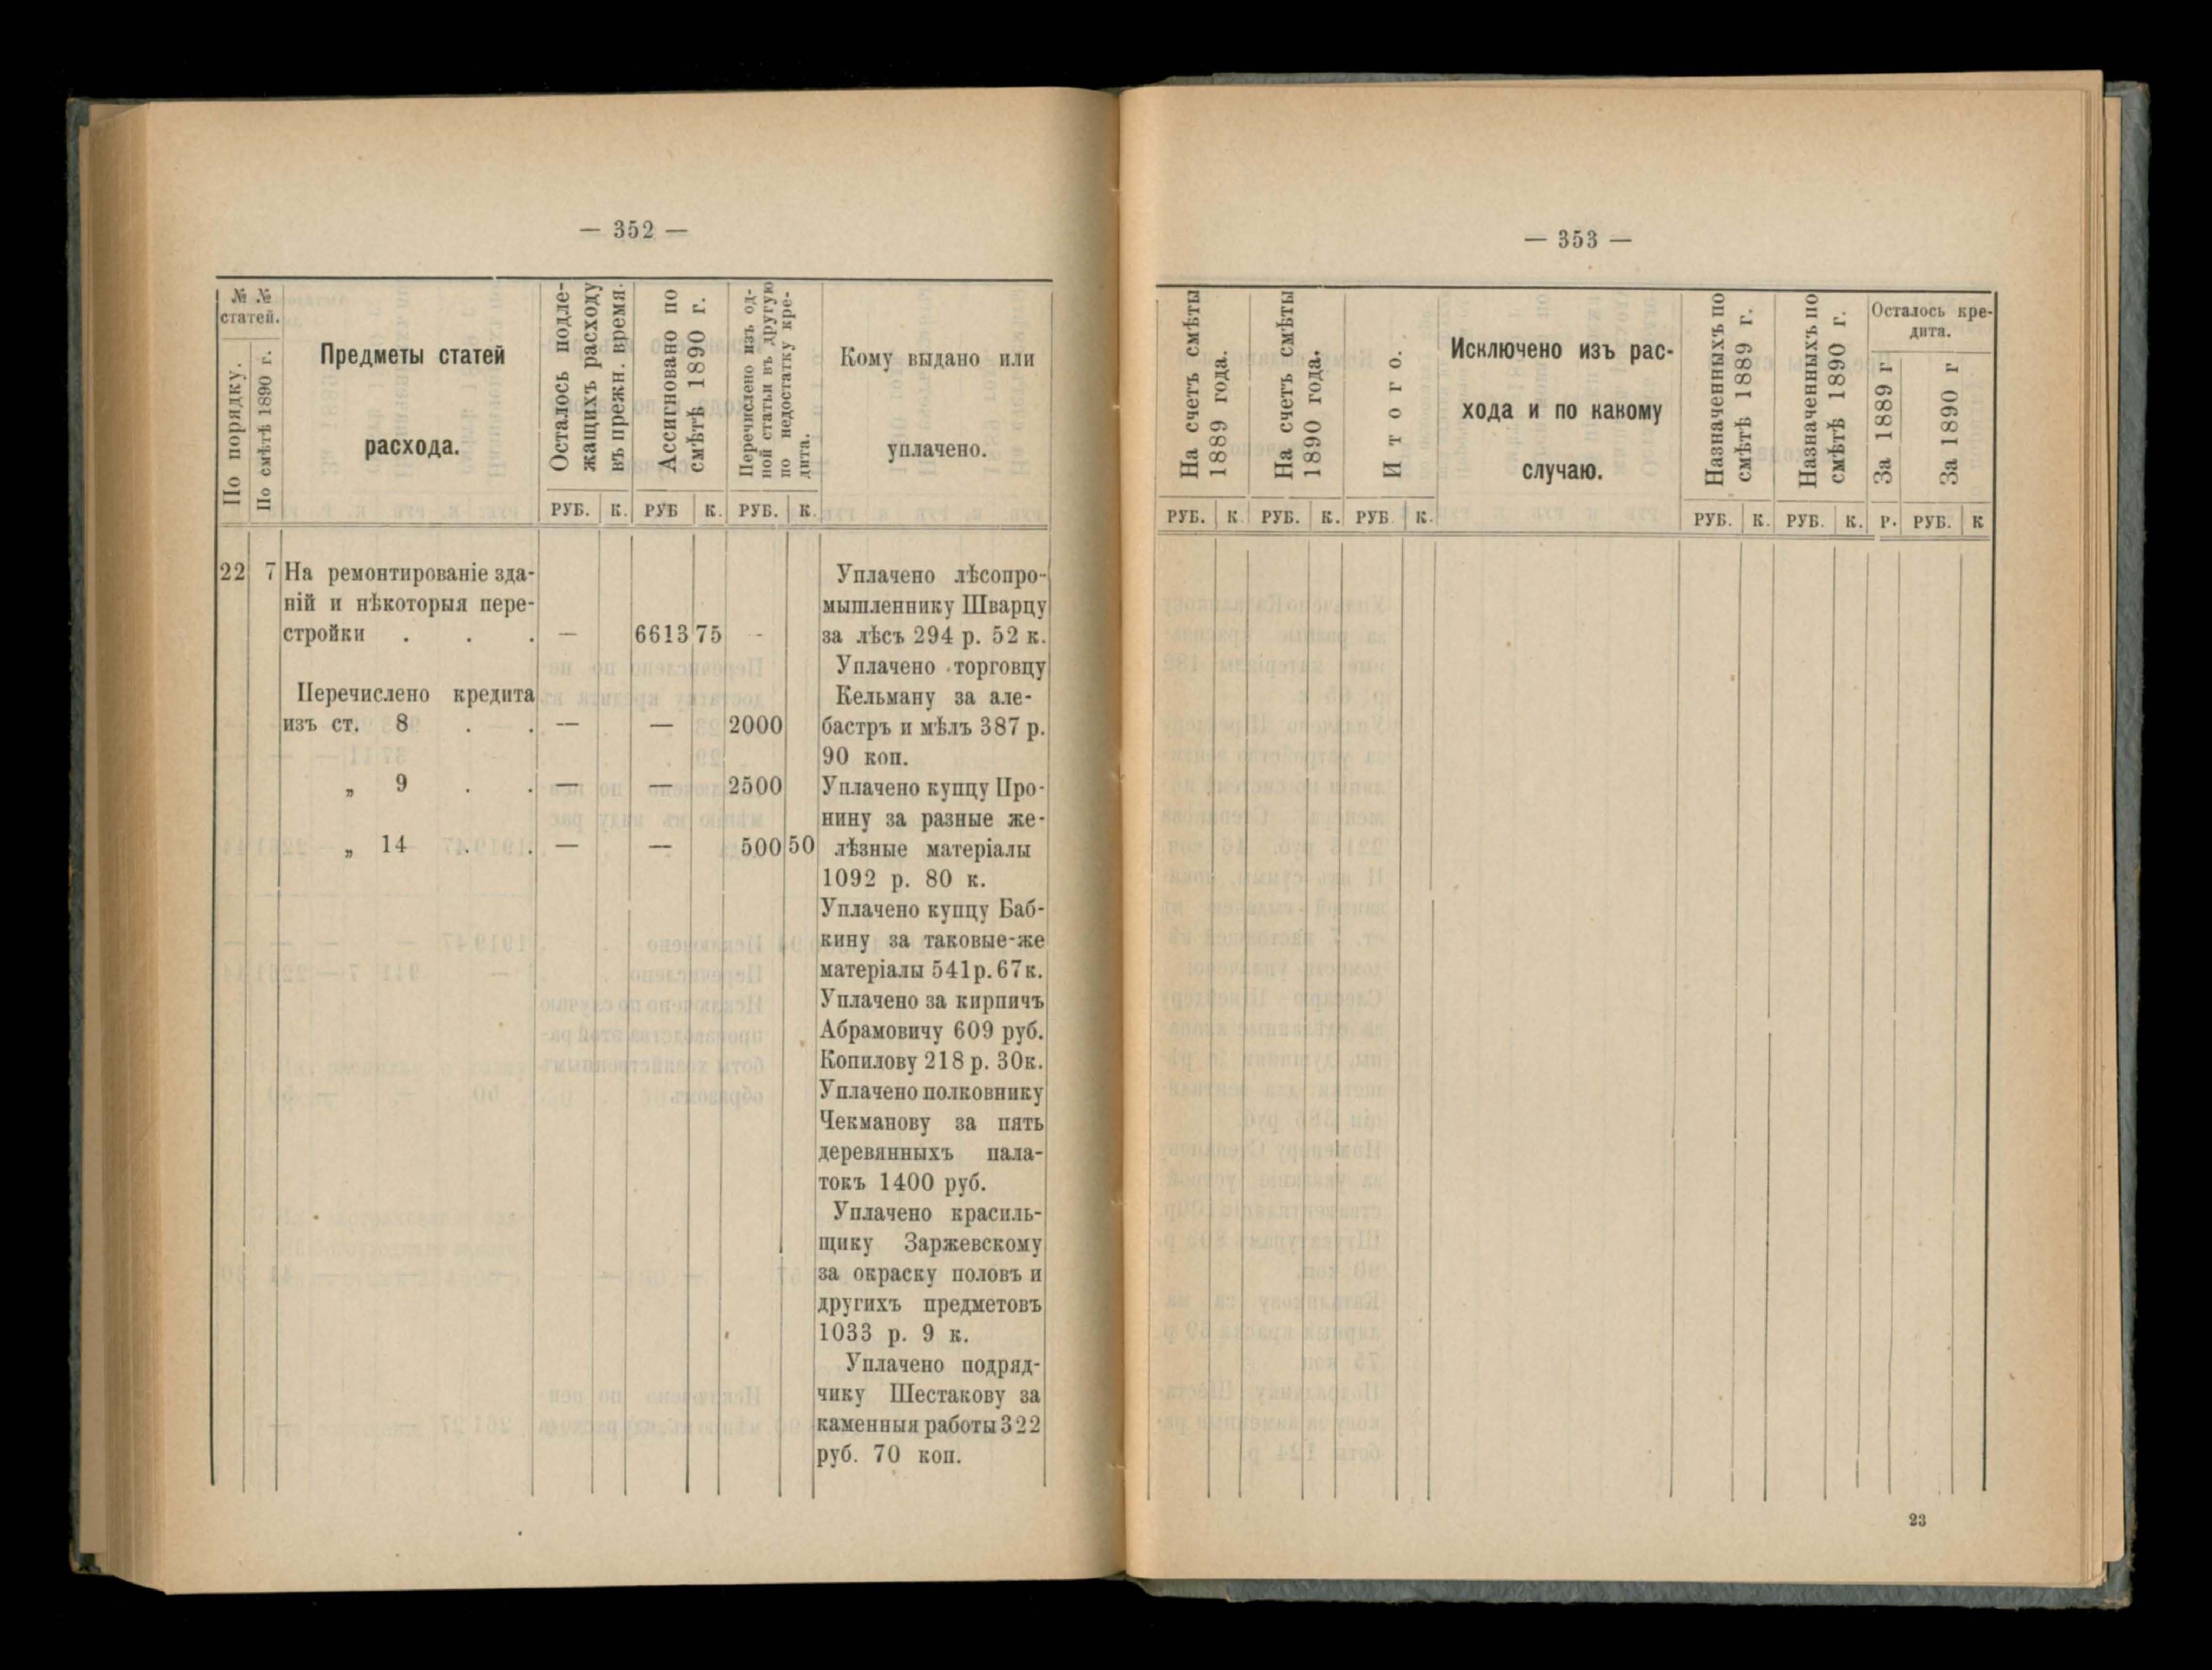 — 352 —
№ №
статей.
По порядку.
По смѣтѣ 1890 г.
Предметы статей
расхода.
Осталось подле-
жащихъ расходу
въ прежн. время.
Ассигновано по
смѣтѣ 1890 г.
Перечислено изъ од-
ной статьи въ другую
по недостатку кре-
дита.
Кому выдано или
уплачено.
РУБ. К. РУБ К. РУБ. К.
22 7 На ремонтированіе зда-
ній и нѣкоторыя пере-
стройки . . . — 6613 75 -
Перечислено кредита
изъ ст. 8 . . — — 2000
„ 9 . . — — 2500
„ 14 . . — — 500 50
Уплачено лѣсопро-
мышленнику Шварцу
за лѣсъ 294 р. 52 к.
Уплачено торговцу
Кельману за але-
бастръ и мѣлъ 387 р.
90 коп.
Уплачено купцу Про-
нину за разные же-
лѣзные матеріалы
1092 р. 80 к.
Уплачено купцу Баб-
кину за таковые-же
матеріалы 541 р. 67 к.
Уплачено за кирпичъ
Абрамовичу 609 руб.
Копилову 218 р. 30 к.
Уплачено полковнику
Чекманову за пять
деревянныхъ пала-
токъ 1400 руб.
Уплачено красиль-
щику Заржевскому
за окраску половъ и
другихъ предметовъ
1033 р. 9 к.
Уплачено подряд-
чику Шестакову за
каменныя работы 322
руб. 70 коп.
— 353 —
На счетъ смѣты
1889 года.
На счетъ смѣты
1890 года.
Итого.
Исключено изъ рас-
хода и по какому
случаю.
Назначенныхъ по
смѣтѣ 1889 г.
Назначенныхъ по
смѣтѣ 1890 г.
Осталось кре-
дита.
За 1889 г
За 1890 г
РУБ. К РУБ. К. РУБ К. РУБ. К. РУБ. К. Р. РУБ. К
23